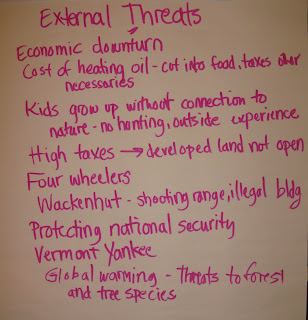 External Threats
Economic downturn
Cost of heating oil - cut into food, taxes other
necessaries
Kids grow up without connection to
nature - no hunting, outside experience
High taxes → developed land not open
Four wheelers
Wackenhut - shooting range, illegal bldg
Protecting national security
Vermont Yankee
Global warming - Threats to forest
and tree species